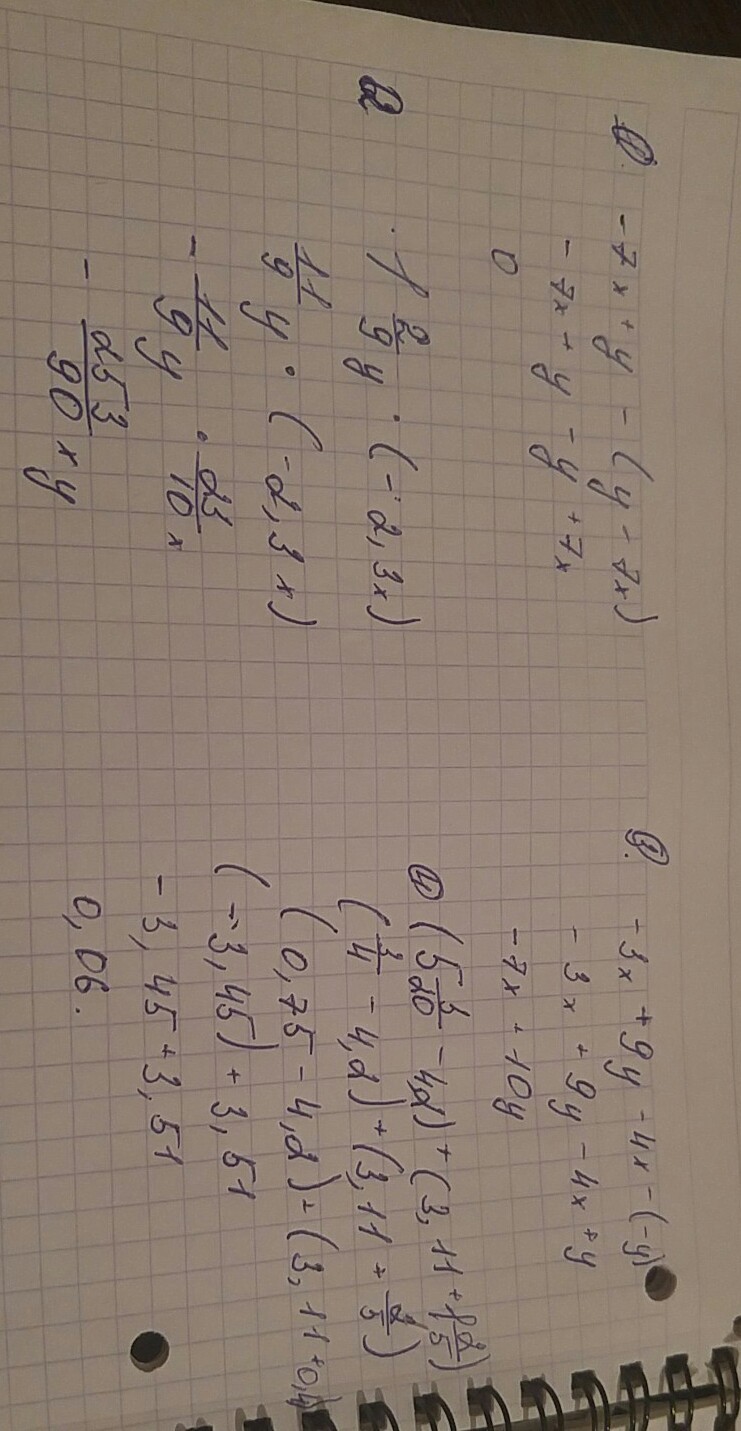 1. -7x + y - (y - 7x)
-7x + y - y + 7x
0
2 1 2/9 y · (-2,3x)
11/9 y · (-2,3x)
- 11/9 y · 23/10 x
- 253/90 xy
3. -3x + 9y - 4x - (-y)
-3x + 9y - 4x + y
-7x + 10y
4) (5 3/20 - 4,2) + (3,11 + 1 2/5)
(3/4 - 4,2) + (3,11 + 2/5)
(0,75 - 4,2) + (3,11 + 0,4)
(-3,45) + 3,51
-3,45 + 3,51
0,06.